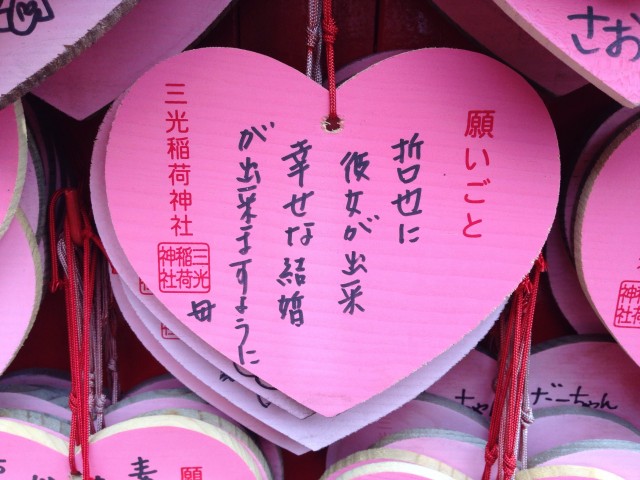 願いごと
哲也に
彼女が出来
幸せな結婚
が出来ますように
母
三光稲荷神社
三光
稲荷
神社
さお
ちゃ
だーちゃん
願